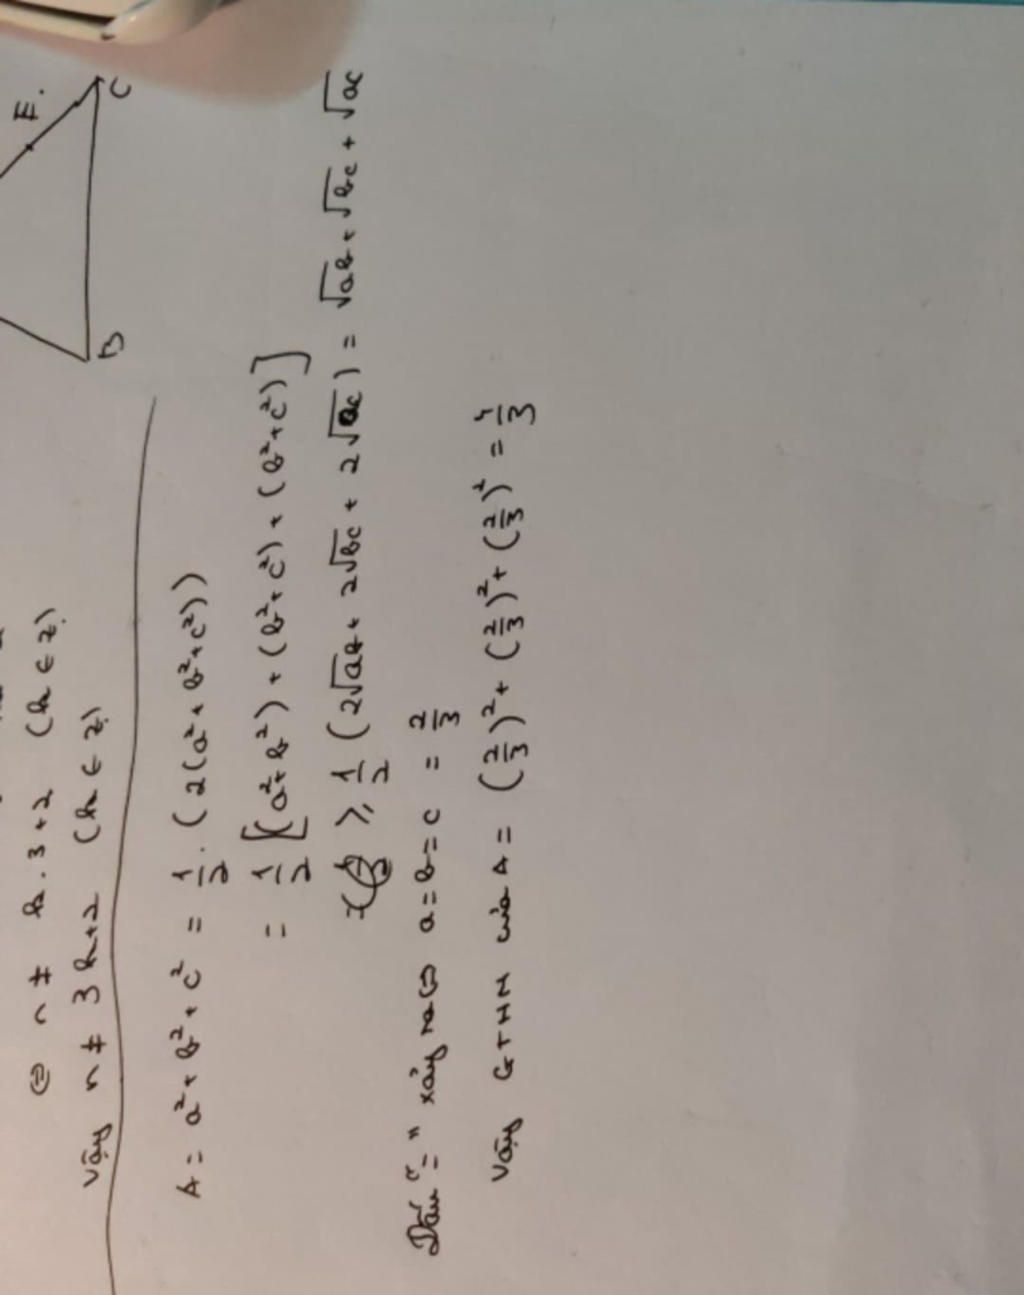 E.
C
B
⇔ n ≠ k.3+2 (k ∈ Z)
Vậy n ≠ 3k+2 (k ∈ Z)
A = a² + b² + c² = 1/2 . (2(a² + b² + c²))
= 1/2 [(a² + b²) + (b² + c²) + (b² + c²)]
≥ 1/2 (2√ab + 2√bc + 2√ac) = √ab + √bc + √ac
Dấu "=" xảy ra ⇔ a = b = c = 2/3
Vậy GTNN của A = (2/3)² + (2/3)² + (2/3)² = 4/3